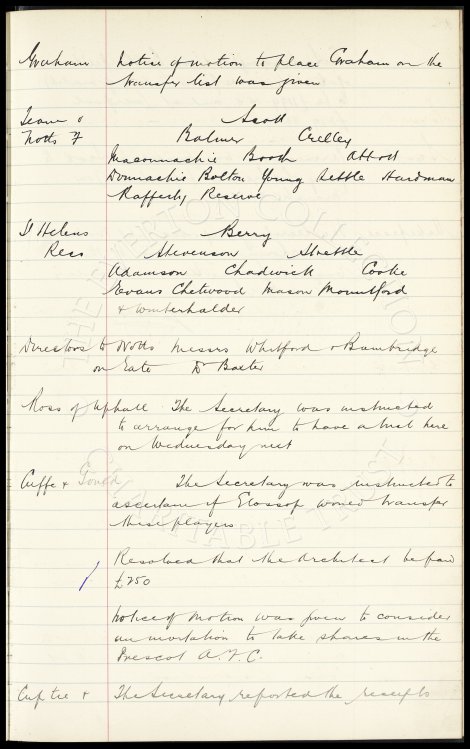 Graham Notice of motion to place Graham on the
transfer list was given
Team v Scott
Notts F Balmer Crelley
Maconnachie Booth Abbott
Donnachie Bolton Young Settle Hardman
Rafferty Reserve
St Helens Berry
Recs Stevenson Strettle
Adamson Chadwick Cooke
Evans Chetwood Mason Mountford
& Winterhalder
Directors to Notts Messrs Whitford & Bainbridge
on Gate Dr Baxter
Ross of Uphall The Secretary was instructed
to arrange for him to have a trial here
on Wednesday next
Cuffe & Gould The Secretary was instructed to
ascertain if Glossop would transfer
these players
Resolved that the Architect be paid
£250
Notice of motion was given to consider
an invitation to take shares in the
Prescot A.F.C.
Cup tie & The Secretary reported the receipts
THE EVERTON COLLECTION
CHARITABLE TRUST